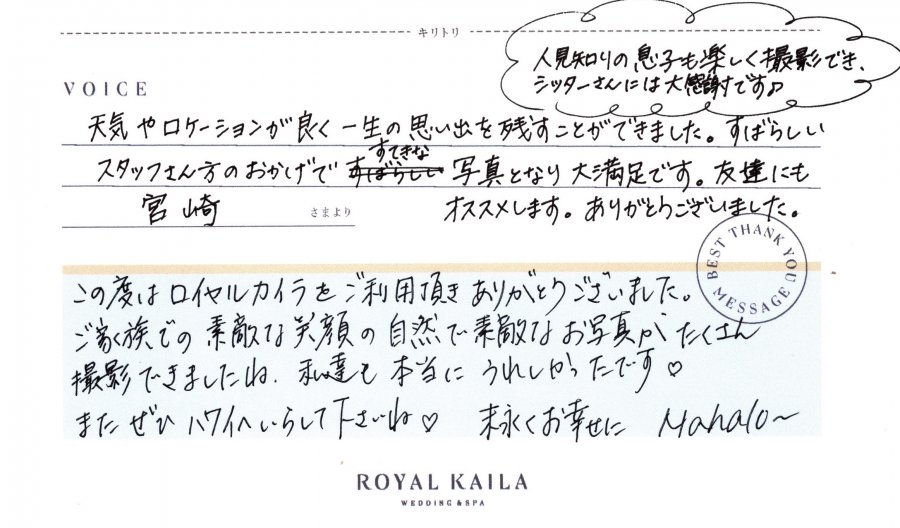 キリトリ
人見知りの息子も楽しく撮影でき、
シッターさんには大感謝です♪
VOICE
天気やロケーションが良く一生の思い出を残すことができました。すばらしい
すてきな
スタッフさん方のおかげですばらしい写真となり大満足です。友達にも
宮崎 さまより オススメします。ありがとうございました。
BEST THANK YOU MESSAGE
この度はロイヤルカイラをご利用頂きありがとうございました。
ご家族での素敵な笑顔の自然で素敵なお写真がたくさん
撮影できましたね。私達も本当にうれしかったです♡
またぜひハワイへいらして下さいね♡ 末永くお幸せに Mahalo〜
ROYAL KAILA
WEDDING & SPA